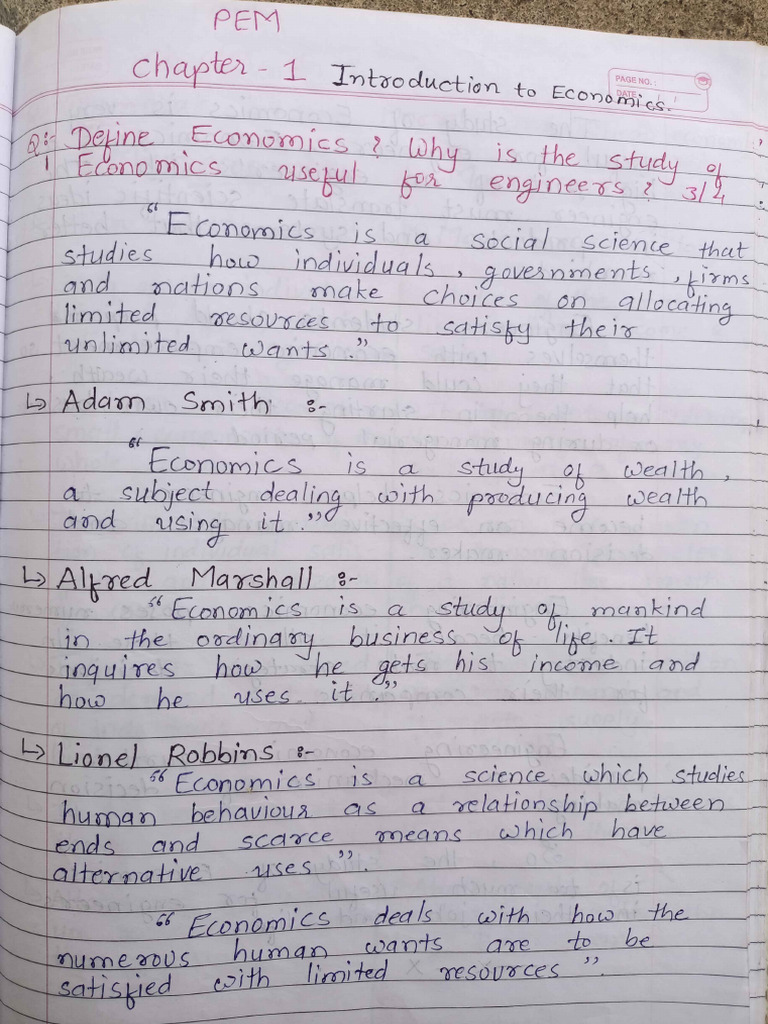 PEM
Chapter - 1 Introduction to Economics.
PAGE NO. :
DATE
Q:- Define Economics? Why is the study of
1 Economics useful for engineers? 3/4
"Economics is a social science that
studies how individuals, governments, firms
and nations make choices on allocating
limited resources to satisfy their
unlimited wants."
↳ Adam Smith :-
"Economics is a study of wealth,
a subject dealing with producing wealth
and using it."
↳ Alfred Marshall :-
"Economics is a study of mankind
in the ordinary business of life. It
inquires how he gets his income and
how he uses it."
↳ Lionel Robbins :-
"Economics is a science which studies
human behaviour as a relationship between
ends and scarce means which have
alternative uses".
"Economics deals with how the
numerous human wants are to be
satisfied with limited resources".